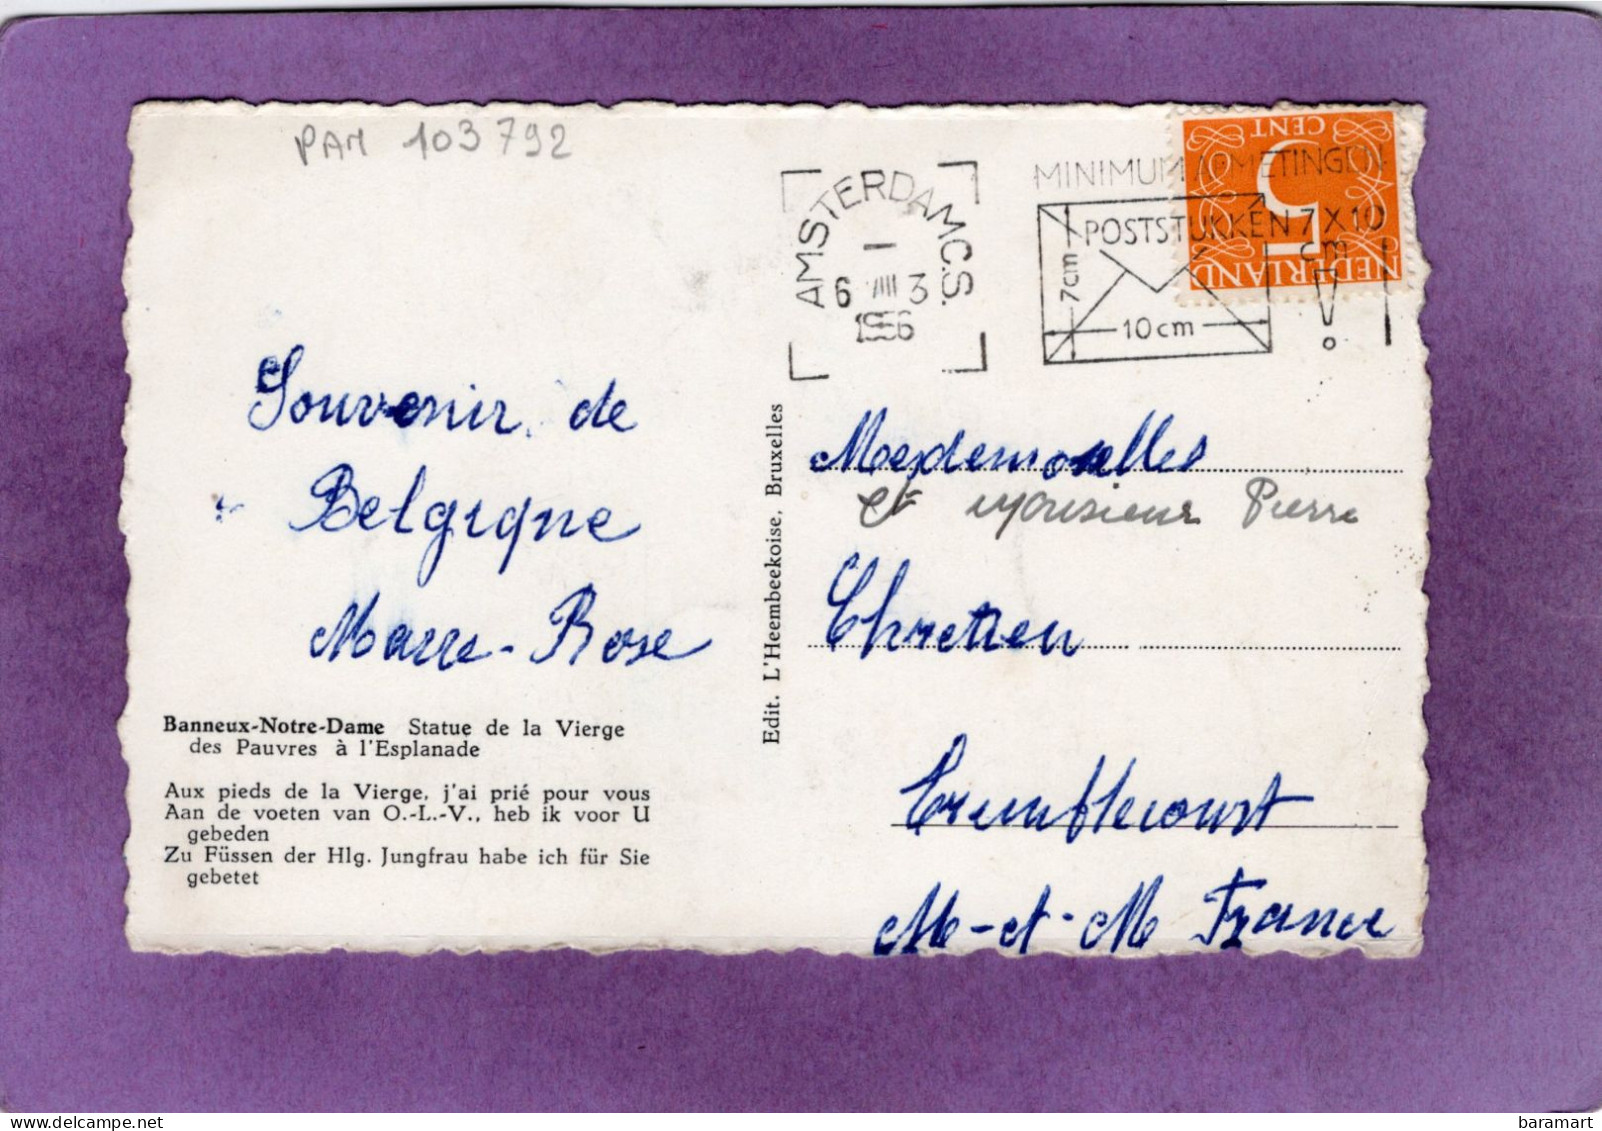 PAM 103792
AMSTERDAM C.S.
I
6 VIII 3
1956
MINIMUM AFMETINGEN
POSTSTUKKEN 7 X 10
cm
!
7cm
10cm
5
CENT
NEDERLAND
Souvenir de
Belgique
Marie-Rose
Banneux-Notre-Dame Statue de la Vierge
des Pauvres à l'Esplanade
Aux pieds de la Vierge, j'ai prié pour vous
Aan de voeten van O.-L.-V., heb ik voor U
gebeden
Zu Füssen der Hlg. Jungfrau habe ich für Sie
gebetet
Edit. L'Heembeekoise, Bruxelles
Mesdemoiselles
et Monsieur Pierre
Chretien
Tremblecourt
M-et-M France
baramart